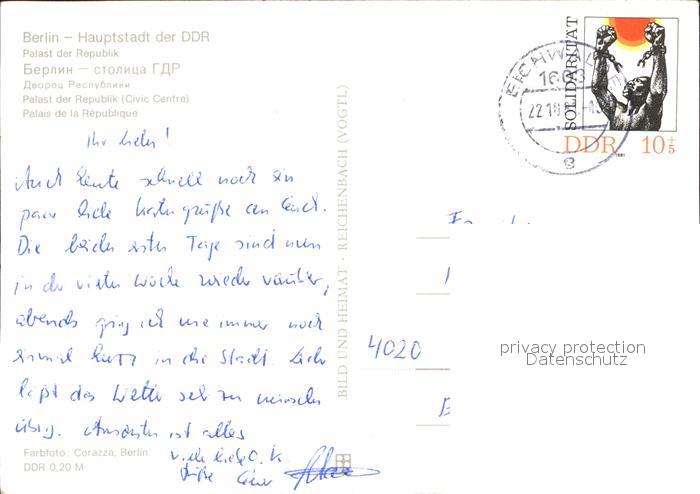 Berlin – Hauptstadt der DDR
Palast der Republik
Берлин – столица ГДР
Дворец Республики
Palast der Republik (Civic Centre)
Palais de la République
Ihr Lieben!
Auch heute schnell noch ein
paar liebe Kartengrüße an Euch.
Die beiden ersten Tage sind nun
in der vierten Woche wieder vorüber,
abends ging ich wie immer noch
einmal kurz in die Stadt. Leider
läßt das Wetter sehr zu wünschen
übrig. Ansonsten ist alles
o.k.
viele liebe
Grüße Euer
Farbfoto: Corazza, Berlin
DDR 0,20 M
BILD UND HEIMAT · REICHENBACH (VOGTL)
EICHWALDE
1603
22.10
e
SOLIDARITÄT
DDR 10+5
1981
4020
privacy protection
Datenschutz